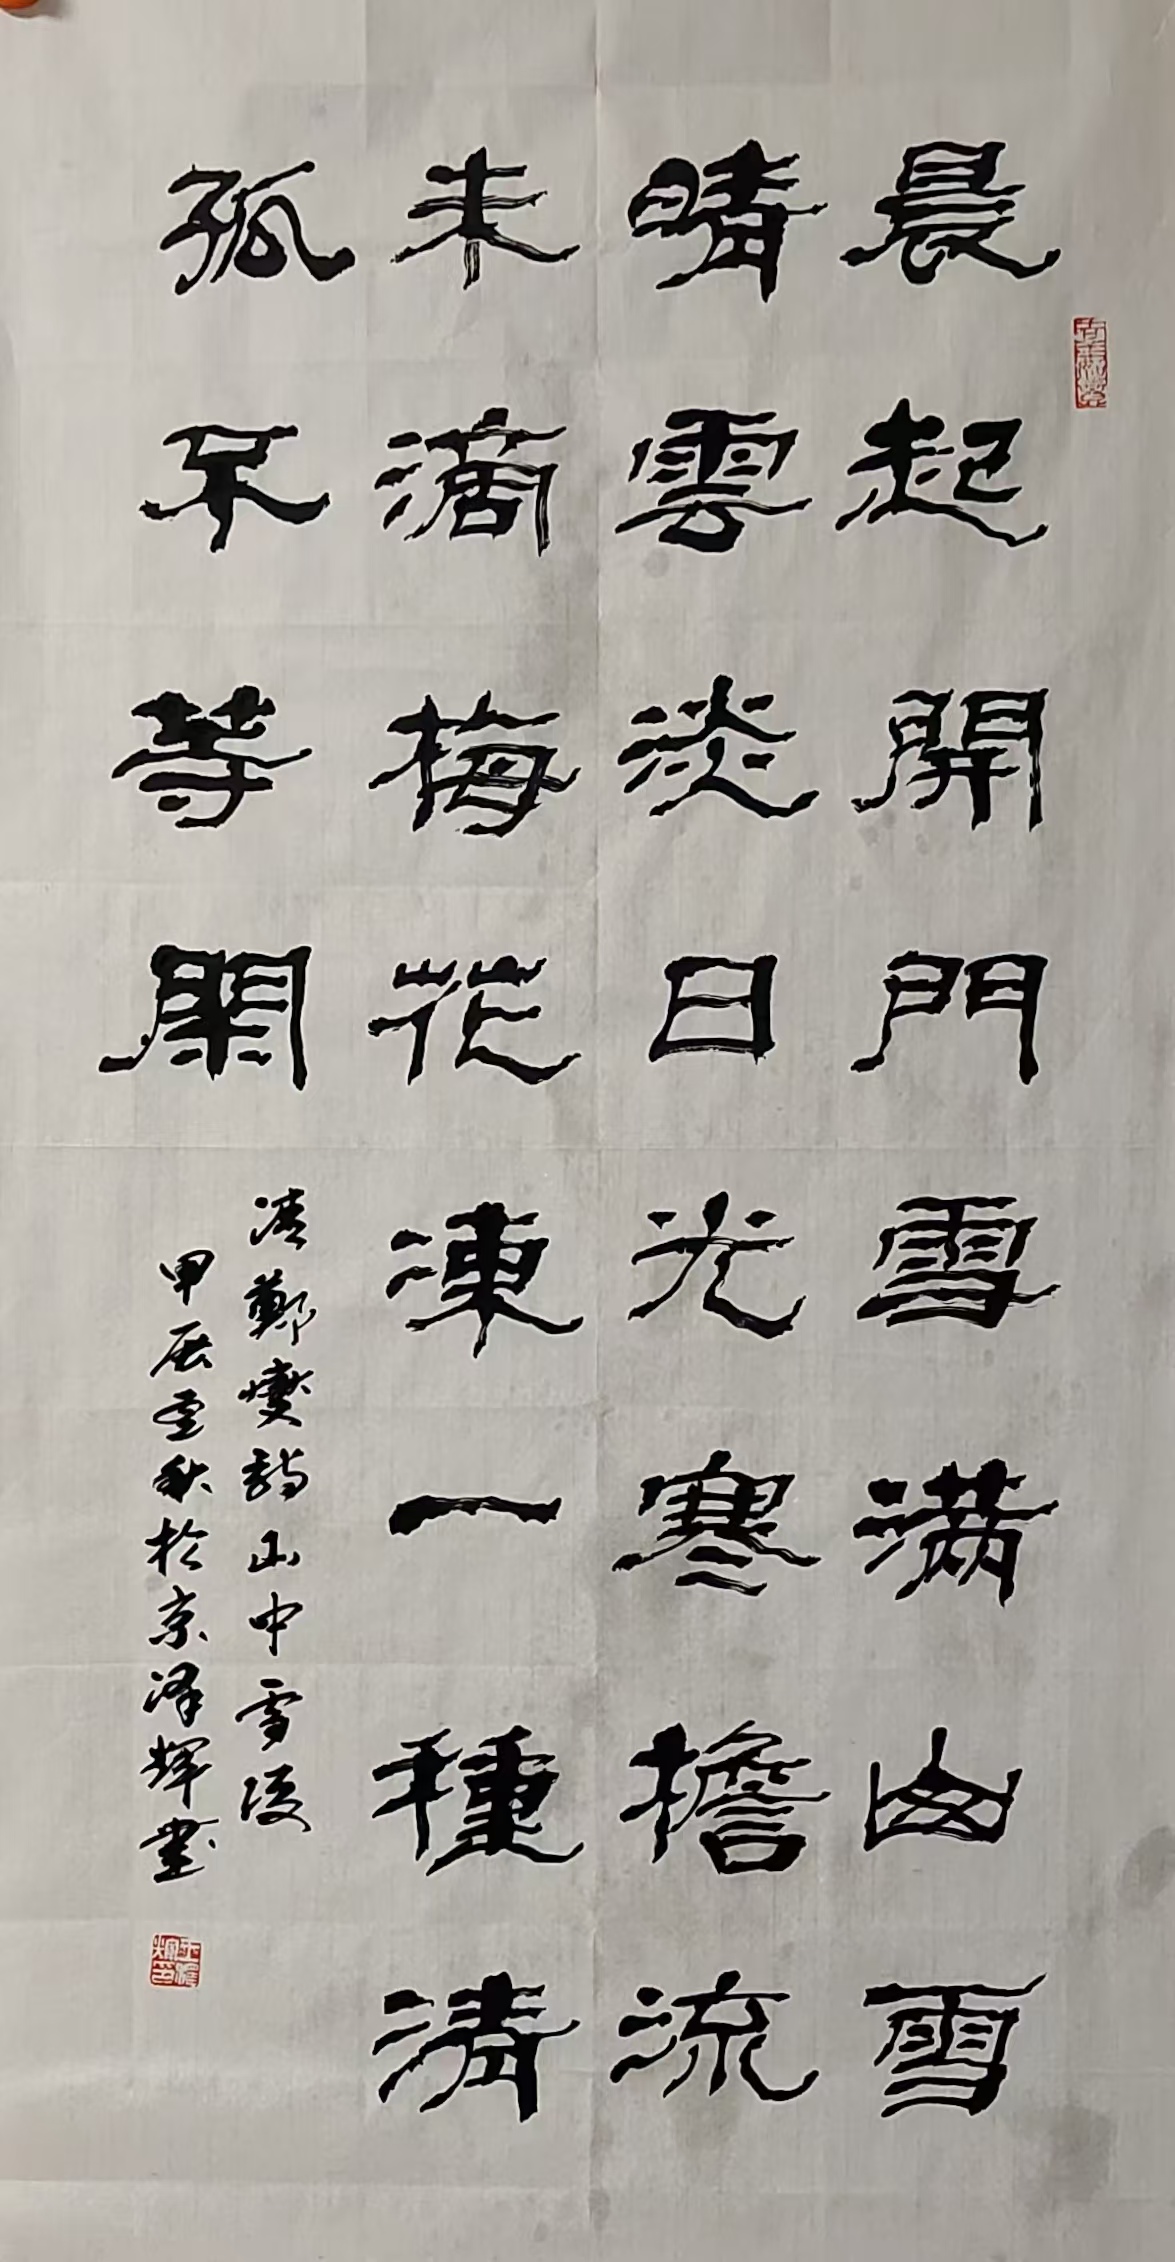 晨起開門雪满山雪
晴雲淡日光寒檐流
未滴梅花凍一種清
孤不等閑
清鄭燮詩山中雪後
甲辰孟秋於京澤輝書